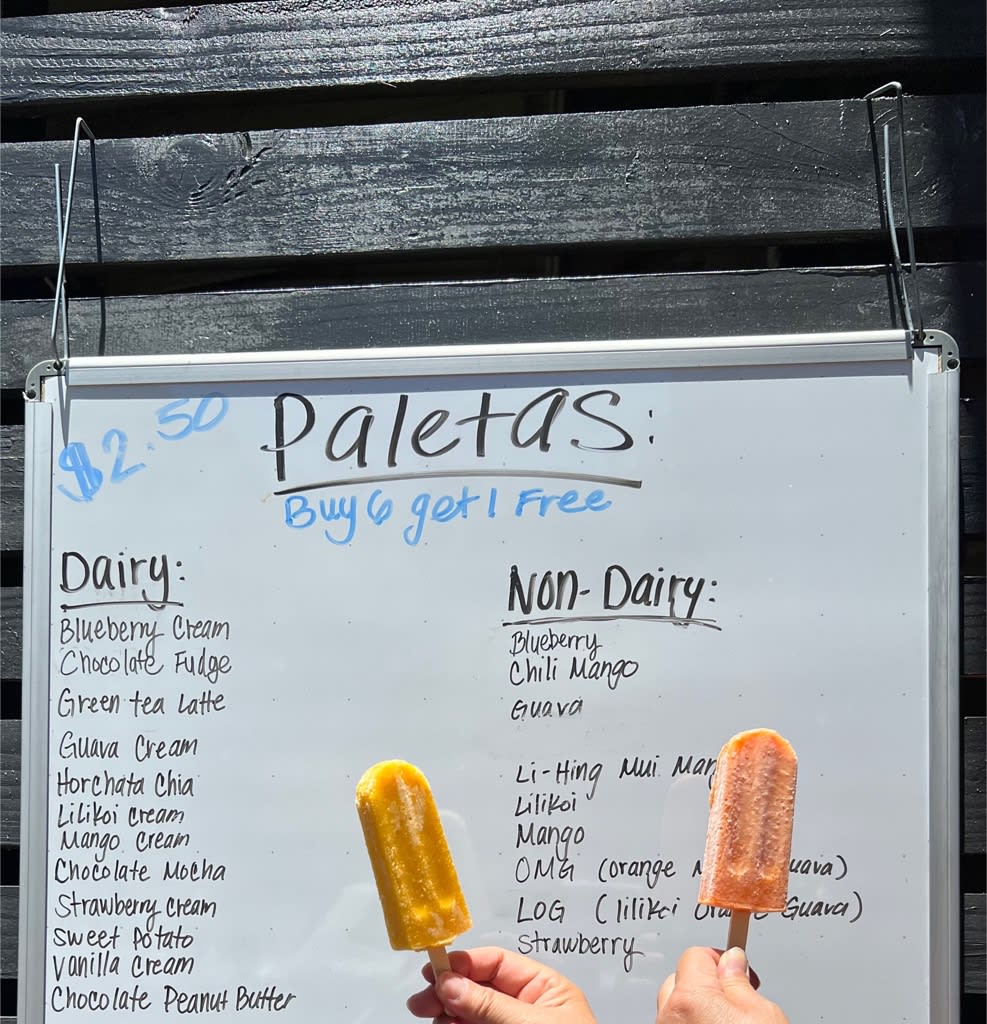 $2.50
Paletas:
Buy 6 get 1 Free
Dairy:
Blueberry Cream
Chocolate Fudge
Green tea Latte
Guava Cream
Horchata Chia
Lilikoi Cream
Mango Cream
Chocolate Mocha
Strawberry Cream
Sweet Potato
Vanilla Cream
Chocolate Peanut Butter
Non-Dairy:
Blueberry
Chili Mango
Guava
Li-Hing Mui
Lilikoi
Mango
OMG (orange
LOG (lilikoi Guava)
Strawberry